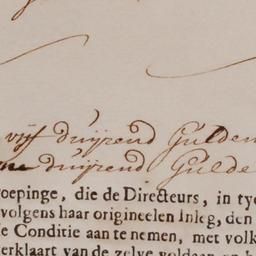 vijf duijzend Gulden
duijzend Gulde
oepinge, die de Directeurs, in ty
volgens haar origineelen Inleg, den
e Conditie aan te nemen, met volk
erklaart van de zelve voldaan